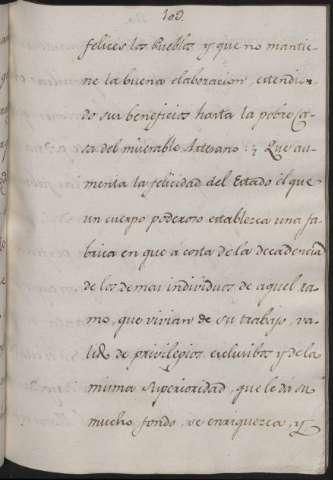 109.
felices los Pueblos y que no mantie
ne la buena elaboracion, estendien
do sus beneficios hasta la pobre Ca
sa del miserable Artesano: ¿ Que au
menta la felicidad del Estado él que
un cuerpo poderoso establezca una fa
brica en que á costa de la decadencia
de los demas individuos de aquel ra
mo, que vivian de su trabajo, va
lida de privilegios exclusibos y de la
misma Superioridad, que le da su
mucho fondo, se enriquezca, y